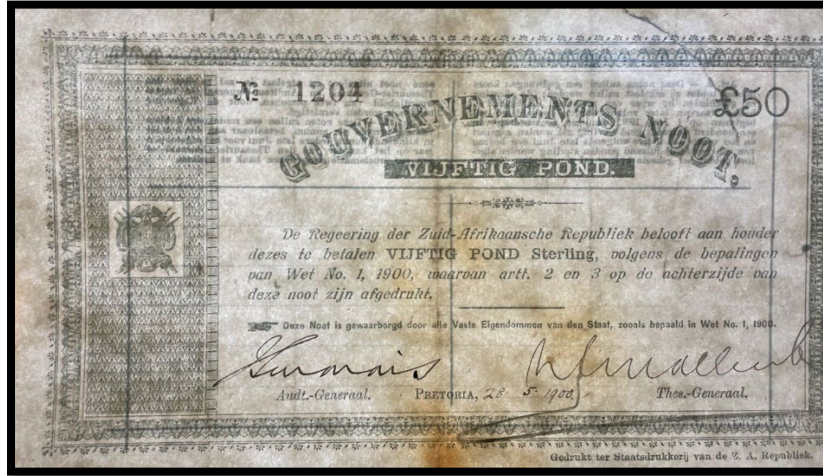 № 1204
£50
GOUVERNEMENTS NOOT,
VIJFTIG POND.
De Regeering der Zuid-Afrikaansche Republiek belooft aan houder
dezes te betalen VIJFTIG POND Sterling, volgens de bepalingen
van Wet No. 1, 1900, waarvan artt. 2 en 3 op de achterzijde van
deze noot zijn afgedrukt.
Deze Noot is gewaarborgd door alle Vaste Eigendommen van den Staat, zooals bepaald in Wet No. 1, 1900.
Audt.-Generaal. PRETORIA, 28 5 1900, Thes.-Generaal.
Gedrukt ter Staatsdrukkerij van de Z. A. Republiek.